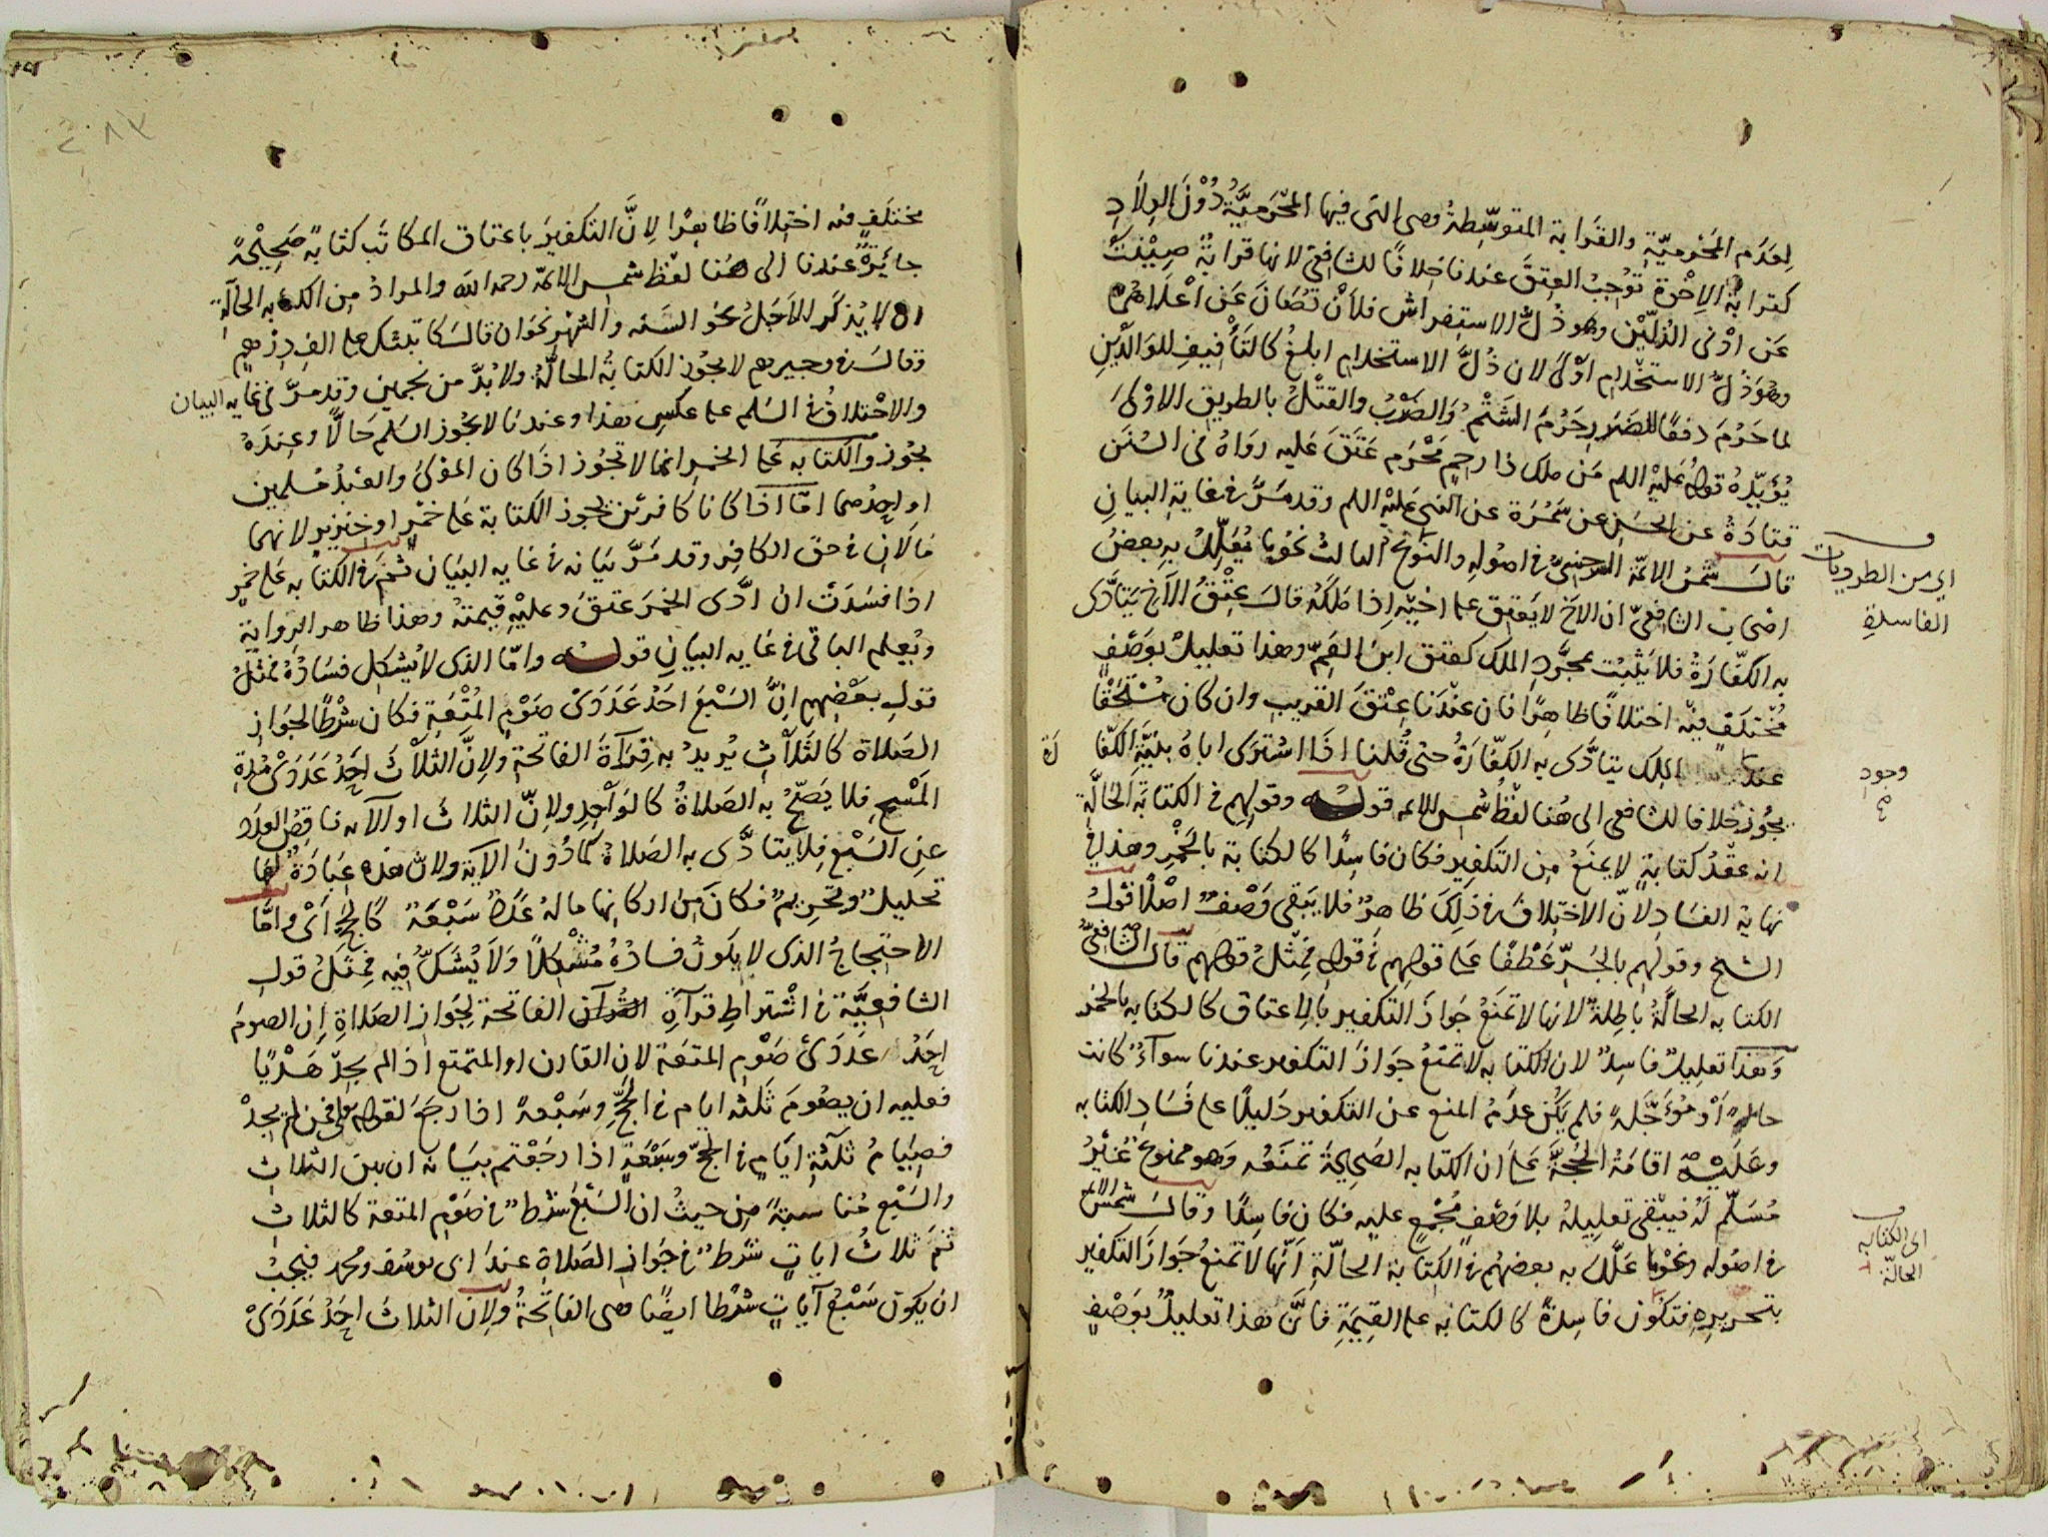 لعدم المحرمية والقرابة المتوسطة وهي التي فيها المحرمية دون الولاد
كقرابة الاخوة توجب العتق عندنا خلافا للشافعي لانها قرابة صينت
عن ادنى الذلين وهو ذل الاستفراش فلان تصان عن اعلاهما
وهو ذل الاستخدام اولى لان ذل الاستخدام ابلغ كالتأفيف للوالدين
لما حرم دفعا للضرر حرم الشتم والضرب والقتل بالطريق الاولى
يؤيده قوله عليه السلم من ملك ذا رحم محرم عتق عليه رواه في السنن
قتادة عن الحسن عن سمرة عن النبي عليه السلم وقد مر في غاية البيان
قال شمس الائمة السرخسي في اصوله والنوع الثالث نحو ما يعلل به بعض
اصحاب الشافعي ان الاخ لا يعتق على اخيه اذا ملكه قال عتق الاخ يتأدى
به الكفارة فلا يثبت بمجرد الملك كعتق ابن العم وهذا تعليل بوصف
مختلف فيه اختلافا ظاهرا فان عندنا عتق القريب وان كان مستحقا
عند الملك يتأدى به الكفارة حتى قلنا اذا اشترى اباه بنية الكفا
رة
يجوز خلافا للشافعي الى هنا لفظ شمس الائمة قوله وقولهم في الكتابة الحالة
انه عقد كتابة لا يمنع من التكفير فكان فاسدا كالكتابة بالخمر وهذا في
نهاية الفساد لان الاختلاف في ذلك ظاهر فلا يبقى وصف اصلا قول
الشيخ وقولهم بالجر عطفا على قولهم في قوله مثل قولهم قال الشافعي
الكتابة الحالة باطلة لانها لا تمنع جواز التكفير بالاعتاق كالكتابة بالخمر
وهذا تعليل فاسد لان الكتابة لا تمنع جواز التكفير عندنا سواء كانت
حالة او مؤجلة فلم يكن عدم المنع عن التكفير دليلا على فساد الكتابة
وعليه اقامة الحجة على ان الكتابة الصحيحة تمنعه وهو ممنوع غير
مسلم له فيبقى تعليله بلا وصف مجمع عليه فكان فاسدا وقال شمس الائمة
في اصوله ونحو ما علل به بعضهم في الكتابة الحالة انها لا تمنع جواز التكفير
بتحريره فتكون فاسدة كالكتابة على القيمة فان هذا تعليل بوصف
اي من الطرديات
الفاسدة
وجود
صح
اي الكتابة
الحالة
مختلف فيه اختلافا ظاهرا لان التكفير باعتاق المكاتب كتابة صحيحة
جايزة عندنا الى هنا لفظ شمس الائمة رحمه الله والمراد من الكتابة الحالة
ان لا يذكر الاجل نحو السنة والشهر نحو ان قال كاتبتك على الف درهم
وقال في وجيزهم لا يجوز الكتابة الحالة ولا بد من نجمين وقد مر في غاية البيان
والاختلاف في السلم على عكس هذا وعندنا لا يجوز السلم حالا وعنده
يجوز والكتابة على الخمر انما لا تجوز اذا كان المولى والعبد مسلمين
او احدهما اما اذا كانا كافرين يجوز الكتابة على خمر او خنزير لانهما
مالان في حق الكافر وقد مر بيانه في غاية البيان ثم في الكتابة على خمر
اذا فسدت ان ادى الخمر عتق وعليه قيمته وهذا ظاهر الرواية
ويعلم الباقي في غاية البيان قوله واما الذي لا يشكل فساده فمثل
قول بعضهم ان السبع احد عددي صوم المتعة فكان شرطا لجواز
الصلاة كالثلاث يريد به قرآة الفاتحة ولان الثلاث احد عددي مدة
المسح فلا يصح به الصلاة كالواحد ولان الثلاث او الآية ناقص العدد
عن السبع فلا يتأدى به الصلاة كما دون الآية ولان هذه عبادة لها
تحليل وتحريم فكان من اركانها ما له عدد سبعة كالحج اي واما
الاحتجاج الذي لا يكون فساده مشكلا ولا يشكل فيه فمثل قول
الشافعية في اشتراط قرآة الفاتحة لجواز الصلاة ان الصوم
احد عددي صوم المتعة لان القارن او المتمتع اذا لم يجد هديا
فعليه ان يصوم ثلثة ايام في الحج وسبعة اذا رجع لقوله تعالى فمن لم يجد
فصيام ثلثة ايام في الحج وسبعة اذا رجعتم بيانه ان بين الثلاث
والسبع مناسبة من حيث ان السبع شرط في صوم المتعة كالثلاث
ثم ثلاث ايات شرط في جواز الصلاة عند ابي يوسف ومحمد فيجب
ان يكون سبع آيات شرطا ايضا وهي الفاتحة ولان الثلاث احد عددي